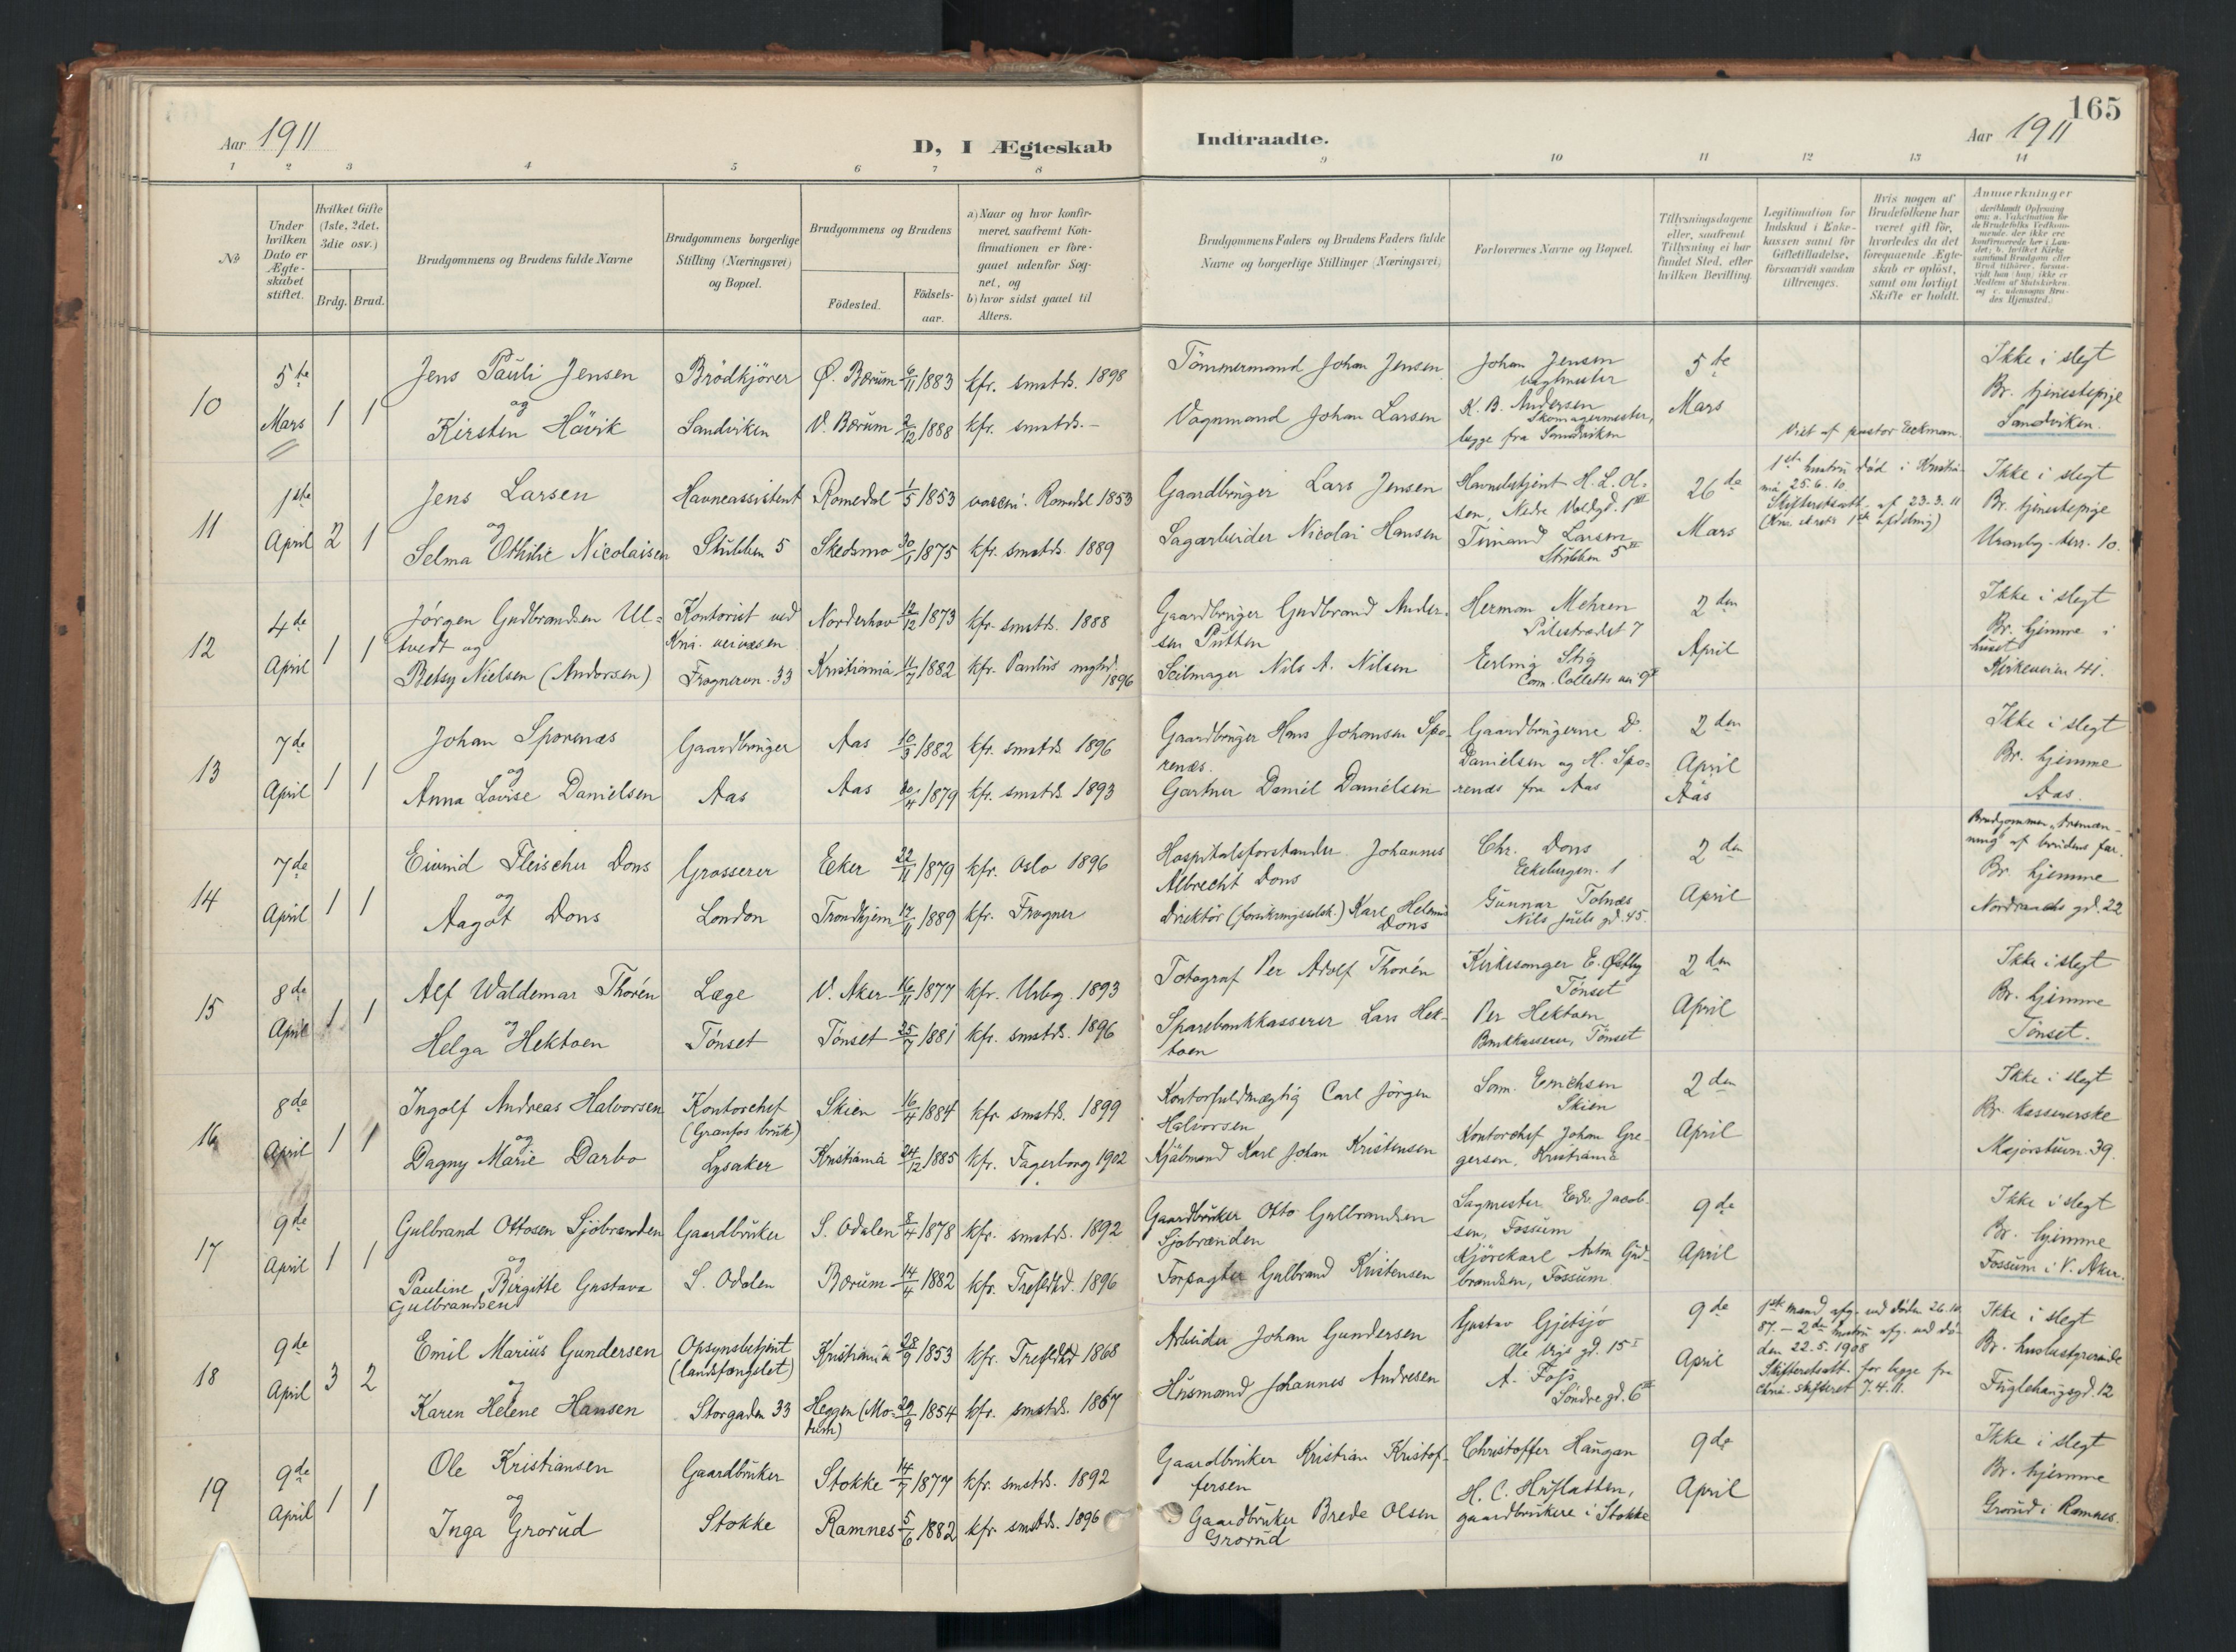 165
Aar 1911
D, I Ægteskab
Indtraadte.
Aar 1911
1 2 3 4 5 6 7 8 9 10 11 12 13 14
No
Under hvilken Dato er Ægte-skabet stiftet.
Hvilket Gifte (1ste, 2det, 3die osv.)
Brdg. Brud.
Brudgommens og Brudens fulde Navne
Brudgommens borgerlige Stilling (Næringsvei) og Bopæl.
Brudgommens og Brudens
Födested.
Födsels-aar.
a) Naar og hvor konfir-meret, saafremt Kon-firmationen er fore-gaaet udenfor Sog-net, og
b) hvor sidst gaaet til Alters.
Brudgommens Faders og Brudens Faders fulde Navne og borgerlige Stillinger (Næringsvei)
Forlovernes Navne og Bopæl.
Tillysningsdagene eller, saafremt Tillysning ei har fundet Sted, efter hvilken Bevilling.
Legitimation for Indskud i Enke-kassen samt for Giftetilladelse, forsaavidt saadan tiltrænges.
Hvis nogen af Brudefolkene har været gift för, hvorledes da det foregaaende Ægte-skab er oplöst, samt om lovligt Skifte er holdt.
Anmerkninger
10
5te Mars
1 1
Jens Pauli Jensen
og
Kirsten Hövik
Brödkjörer
Sandviken
Ø. Bærum 6/11 1883
V. Bærum 2/12 1888
kfr. smstds. 1898
kfr. smstds. -
Tömmermand Johan Jensen
Vognmand Johan Larsen
Johan Jensen
K. B. Andersen
Skomagermester,
begge fra Sandviken
5te Mars
Viet af pastor Eeckman.
Ikke i slegt
Br. tjenestepige
Sandviken.
11
1ste April
2 1
Jens Larsen
og
Selma Othilie Nicolaisen
Havneassistent
Stubben 5
Romedal 1/5 1853
Skedsmo 30/1 1875
vaccin. Romedal 1853
kfr. smstds. 1889
Gaardbruger Lars Jensen
Sagarbeider Nicolai Hansen
Havnebetjent H. L. Ol-
sen, Nedre Voldgd. 1
Larsen
Stubben 5
26de Mars
1ste hustru död i Kristia-
nia 25.6.10.
Skifteretsatt. af 23.3.11
Ikke i slegt
Br. tjenestepige
Uranby. terr. 10.
12
4de April
1 1
Jørgen Gudbrandsen Ul-
tvedt og
Betsy Nielsen (Andorsen)
Kontorist ved
Kria. veivæsen
Frognervn. 33
Norderhov 12/12 1873
Kristiania 11/7 1882
kfr. smstds. 1888
kfr. Paulus mghd. 1896
Gaardbruger Gudbrand Ander-
sen Putten
Seilmager Nils A. Nilsen
Herman Mehren
Pilestrædet 7
Erling Stig
Cam. Colletts vei 9
2den April
Ikke i slegt
Br. hjemme i
huset
Kirkeveien 41.
13
7de April
1 1
Johan Sporenæs
og
Anna Lovise Danielsen
Gaardbruger
Aas
Aas 10/3 1882
Aas 30/4 1879
kfr. smstds. 1896
kfr. smstds. 1893
Gaardbruger Hans Johansen Spo-
renæs.
Gartner Daniel Danielsen
Gaardbrugerne D.
Danielsen og H. Spo-
renæs fra Aas
2den April
Aas
Ikke i slegt
Br. hjemme
Aas.
14
7de April
1 1
Eivind Fleischer Dons
og
Aagot Dons
Grosserer
London
Eker 22/11 1879
Trondhjem 17/11 1889
kfr. Oslo 1896
kfr. Frogner
Hospitalsforstander Johannes
Albrecht Dons
Direktör (forsikringsselsk.) Karl Helmer
Dons
Chr. Dons
Ekebergen. 1
Gunnar Tolnæs
Nils Juels gd. 45.
2den April
Brudgommen tremen-
ning af brudens far.
Br. hjemme
Nordraaks gd. 22
15
8de April
1 1
Alf Waldemar Thorén
og
Helga Hektoen
Læge
Tönset
V. Aker 16/11 1877
Tönset 25/7 1881
kfr. Urbg. 1893
kfr. smstds. 1896
Fotograf Per Adolf Thorén
Sparebankkasserer Lars Hek-
toen
Kirkesanger E. Østby
Tönset
Per Hektoen
Bankkasserer, Tönset
2den April
Ikke i slegt
Br. hjemme
Tönset.
16
8de April
1 1
Ingolf Andreas Halvorsen
og
Dagny Marie Darbo
Kontorchef
(Granfos bruk)
Lysaker
Skien 16/4 1884
Kristiania 24/12 1885
kfr. smstds. 1899
kfr. Fagerborg 1902
Kontorfuldmægtig Carl Jörgen
Halvorsen
Kjöbmand Karl Johan Kristensen
Sam. Erichsen
Skien
Kontorchef Johan Gre-
gersen, Kristiania
2den April
Ikke i slegt
Br. kassererske
Majorstuvn. 39.
17
9de April
1 1
Gulbrand Ottosen Sjöbrænden
og
Pauline Birgitte Gustava
Gulbrandsen
Gaardbruker
S. Odalen
S. Odalen 8/4 1878
Bærum 14/4 1882
kfr. smstds. 1892
kfr. Trefldhd. 1896
Gaardbruker Otto Gulbrandsen
Sjöbrænden
Forpagter Gulbrand Kristensen
Sagmester Edv. Jacob-
sen, Fossum
Kjörekarl Anton Gud-
brandsen, Fossum
9de April
Ikke i slegt
Br. hjemme
Fossum i V. Aker.
18
9de April
3 2
Emil Marius Gundersen
og
Karen Helene Hansen
Opsynsbetjent
(landsfængslet)
Storgaden 33
Kristiania 28/9 1853
Heggen (Mo-
dum) 29/9 1854
kfr. Trefldhd 1868
kfr. smstds. 1867
Arbeider Johan Gundersen
Husmand Johannes Andresen
Gustav Gjetsjö
Ole Vigs gd. 15
A. Foss
Söndre gd. 6
9de April
1ste mand afg. ved döden 26.10.
87. - 2den hustru afg. ved dö-
den 22.5.1908
Skifteretsatt. for begge fra
Chria. skifteret 7.4.11.
Ikke i slegt
Br. husbestyrerinde
Fuglehaugsgd. 12
19
9de April
1 1
Ole Kristiansen
og
Inga Grorud
Gaardbruker
Stokke
Stokke 14/7 1877
Ramnes 5/6 1882
kfr. smstds. 1892
kfr. smstds. 1896
Gaardbruker Kristian Kristof-
fersen
Gaardbruker Brede Olsen
Grorud
Christoffer Haugan
gaardbrukere i Stokke
9de April
Ikke i slegt
Br. hjemme
Grorud i Ramnes.